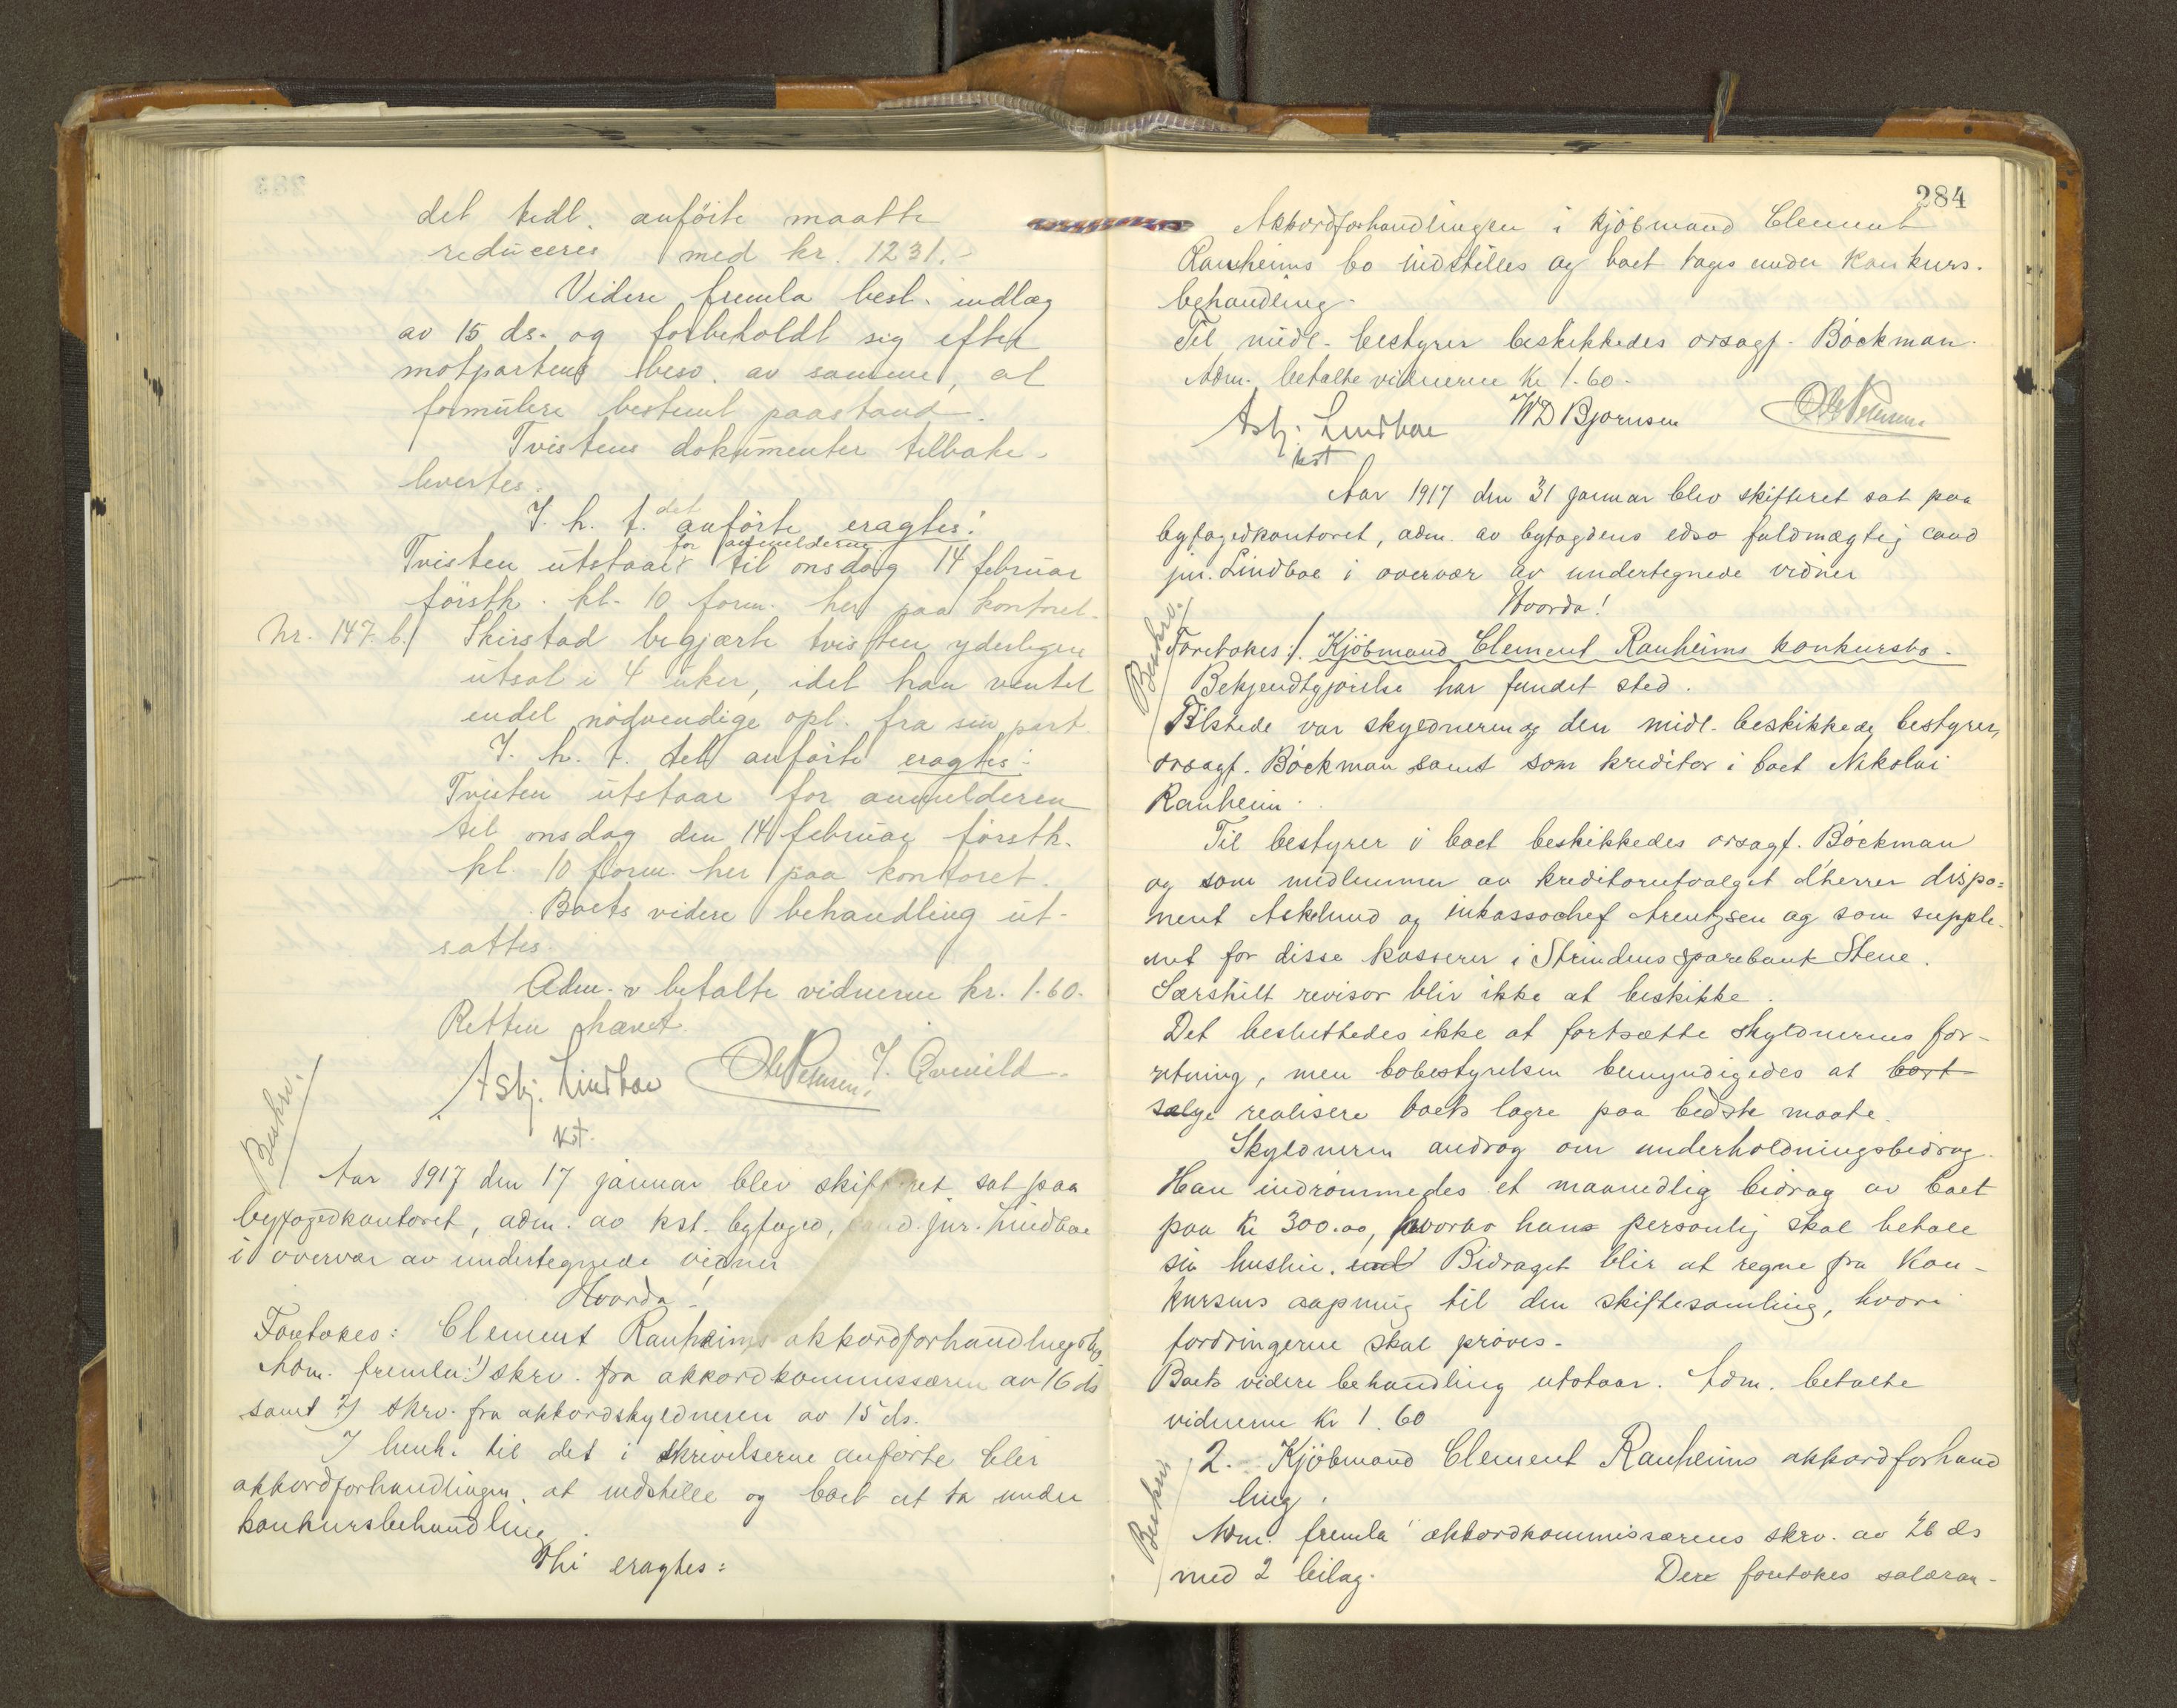 det tidl. anförte maatte
reduceres med kr. 1231.-
Videre fremla best. indlæg
av 15 ds. og forbeholdt sig efter
motpartens besv. av samme, at
formulere bestemt paastand.
Tvistens dokumenter tilbake-
levertes.
I. h. t. det anförte eragtes:
Tvisten utstaar for anmelderne til onsdag 14 februar
førstk. kl. 10 form. her paa kontoret.
Nr. 147. b./ Skirstad begjærte tvisten yderligere
utsat i 4 uker, idet han ventet
endel nödvendige opl. fra sin part.
I. h. t. det anförte eragtes:
Tvisten utstaar for anmelderen
til onsdag den 14 februar førstk.
kl. 10 form. her paa kontoret.
Boets videre behandling ut-
sattes.
Adm. betalte vidnerne kr. 1.60.
Retten hævet.
Asbj. Lindboe Ole Petersen. J. Qvenild.
kst.
Beskrv.
Aar 1917 den 17 januar blev skifteret sat paa
byfogedkontoret, adm. av kst. byfoged, cand. jur. Lindboe
i overvær av undertegnede vidner
Hvorda!
Foretokes: Clement Ranheims akkordforhandlingsbo.
Adm. fremla 1) skrv. fra akkordkommissæren av 16 ds
samt 2) skrv. fra akkordskyldneren av 15 ds.
I henh. til det i skrivelserne anførte blir
akkordforhandlingen at indstille og boet at ta under
konkursbehandling.
Thi eragtes:
284
Akkordforhandlingen i kjöbmand Clement
Ranheims bo indstilles og boet tages under konkurs-
behandling.
Til midl. bestyrer beskikkedes orsagf. Böckman.
Adm. betalte vidnerne Kr 1.60.
Asbj. Lindboe WD Bjørnsen Ole Petersen
kst
Aar 1917 den 31 januar blev skifteret sat paa
byfogedkontoret, adm. av byfogdens edsv fuldmægtig cand
jur. Lindboe i overvær av undertegnede vidner
Hvorda!
Beskrv.
Foretokes: 1. Kjöbmand Clement Ranheims konkursbo.
Bekjendtgjørelse har fundet sted.
Tilstede var skyldneren og den midl. beskikkede bestyrer,
orsagf. Böckman samt som kreditor i boet Nikolai
Ranheim.
Til bestyrer i boet beskikkedes orsagf. Böckman
og som medlemmer av kreditorutvalget d'herrer dispo-
nent Askelund og inkassochef Arentzsen og som supple-
ant for disse kasserer i Strindens sparebank Stene.
Særskilt revisor blir ikke at beskikke.
Det besluttedes ikke at fortsætte skyldnerens for-
retning, men bobestyrelsen bemyndigedes at bort
sælge realisere boets lagre paa bedste maate.
Skyldneren androg om underholdningsbidrag.
Han indrømmedes et maanedlig bidrag av boet
paa Kr 300.00, hvorav han personlig skal betale
sin husleie. Bidraget blir at regne fra kon-
kursens aapning til den skiftesamling, hvori
fordringerne skal prøves.
Boets videre behandling utstaar. Adm. betalte
vidnerne Kr 1.60
Beskrv
2. Kjöbmand Clement Ranheims akkordforhand
ling.
Adm. fremla akkordkommissærens skrv. av 26 ds
med 2 bilag. Der foretokes salæran-